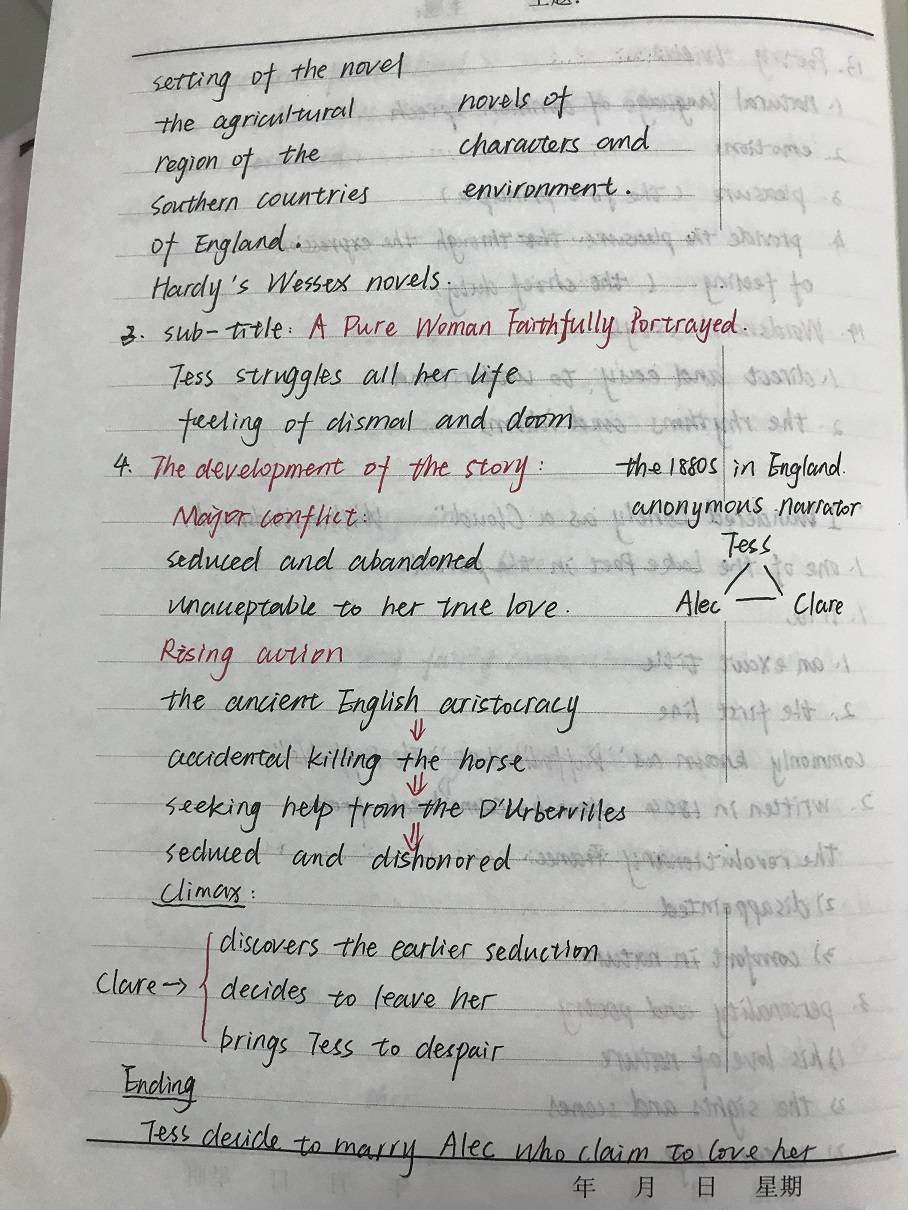 主题:
setting of the novel
the agricultural
region of the
Southern countries
of England.
Hardy's Wessex novels.
novels of
characters and
environment.
3. sub-title: A Pure Woman Faithfully Portrayed.
Tess struggles all her life
feeling of dismal and doom
4. The development of the story:
the 1880s in England.
anonymous narrator
Major conflict:
Tess
seduced and abandoned
unaueptable to her true love.
Alec — Clare
Rising action
the ancient English aristocracy
⇓
accidental killing the horse
⇓
seeking help from the D'Urbervilles
⇓
seduced and dishonored
Climax:
discovers the earlier seduction
Clare→ { decides to leave her
brings Tess to despair
Ending
Tess decide to marry Alec who claim to love her
年 月 日 星期